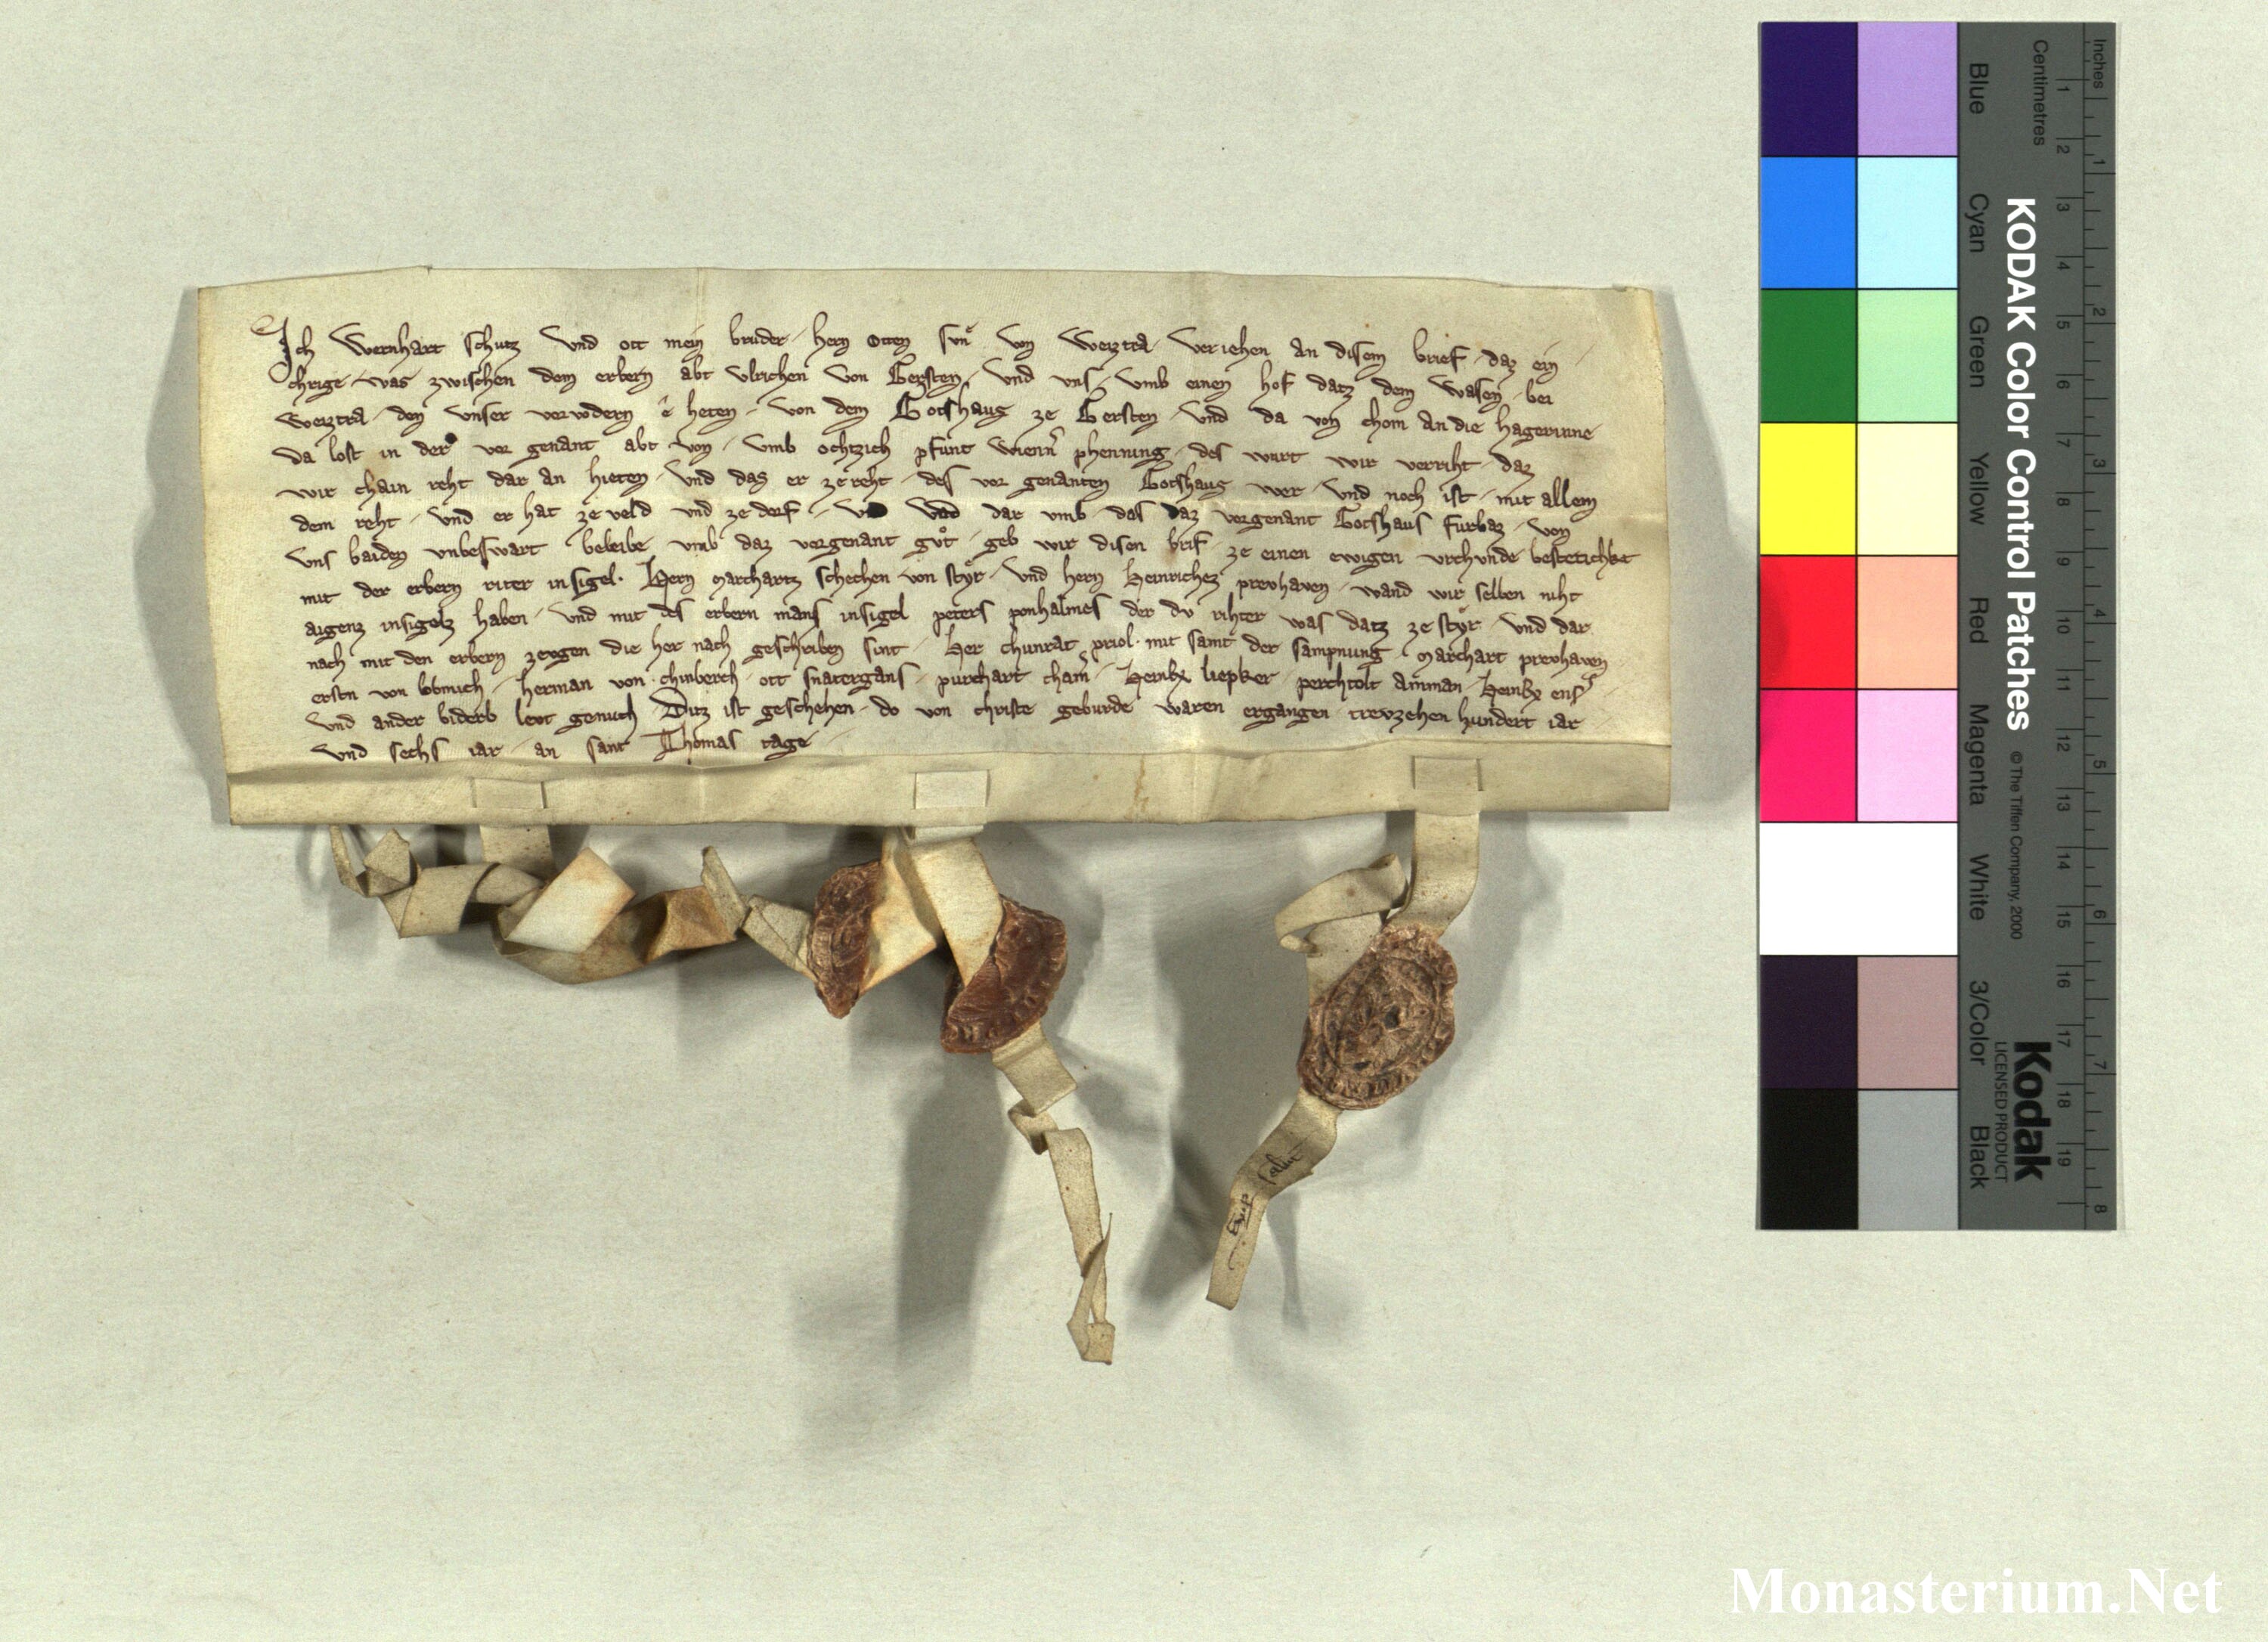 Ich Wernhart schutz Und ott mein bruder hern otten sun von Weiztra veriehen an disem brief daz ein
chrige was zwischen dem erbern abt Ulrichen von Gersten und uns umb einen hof datz dem Wasen bei
Weiztra den unser vorvodern ê heten von dem Gotshaus ze Gersten und da von chom an die hagerinne
da lost in der vor genant abt von umb ochtzich pfunt wienn phenning des wurt wir verriht daz
wir chain reht dar an hieten und das er ze reht des vor genanten Gotshaus wer und noch ist mit allem
dem reht und er hat ze veld und ze dorf dar umb das daz vorgenant Gotshaus furbaz von
uns baiden unbeswart beleibe umb daz vorgenant gůt geb wir disen brif ze einen ewigen urchunde bestetichet
mit der erbern riter insigel. Hern marchartz schechen von styr und hern Heinrichez prevhaven wand wir selben niht
aigenz insigelz haben und mit des erbern mans insigel peters ponhalmes der du rihter was datz ze styr und dar
nach mit den erbern zevgen die her nach geschriben sint Her chunrat priol mit samt der sampnung marchart prevhaven
erstn von herman von chinberch ott snatergans purchart cham Heinrx liepker perchtolt amman Heinrx ens
und ander biderb levt genuch Ditz ist geschehen do von christe geburde waren ergangen trevzehen hundert iar
und sechs iar an sant Thomas tage
KODAK Color Control Patches © The Tiffen Company, 2000
Kodak
LICENSED PRODUCT
Blue Cyan Green Yellow Red Magenta White 3/Color Black
Centimetres 1 2 3 4 5 6 7 8 9 10 11 12 13 14 15 16 17 18 19
Inches 1 2 3 4 5 6 7 8
Monasterium.Net